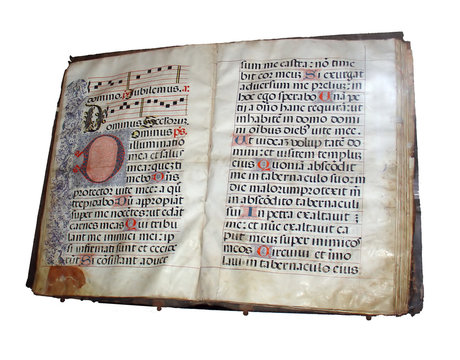 domino. Jubilemus. a:
Dominus defensor.
Dominus ps.
luminatio
mea et salus
mea: quē
timebo: Dñs
protector vite mee: a quo
trepidabo: Dū appropiāt
super me nocētes: ut edāt
carnes meas Qui tribu
lant me inimici mei: ipsi
infirmati sunt et cecide
rūt Si cōsistant aduer
sum me castra: nō time
bit cor meuȝ Si exurgat
aduersum me prelium: in
hoc ego sperabo Unā pe
tii a dño hanc requirā: ut
inhabitē in domo domi
ni oībus dieb' vite mee:
Ut videaȝ volup tatē do
mini: et uisitem templuȝ
eius Quoniā abscōdit
me in tabernaculo suo: in
die malorum protexit m̄
in abscōdito tabernaculi
sui In petra exaltauit
me: et nūc exaltauit caput
meuȝ super inimicos
meos Circuiui et immo
laui in tabernaculo eius